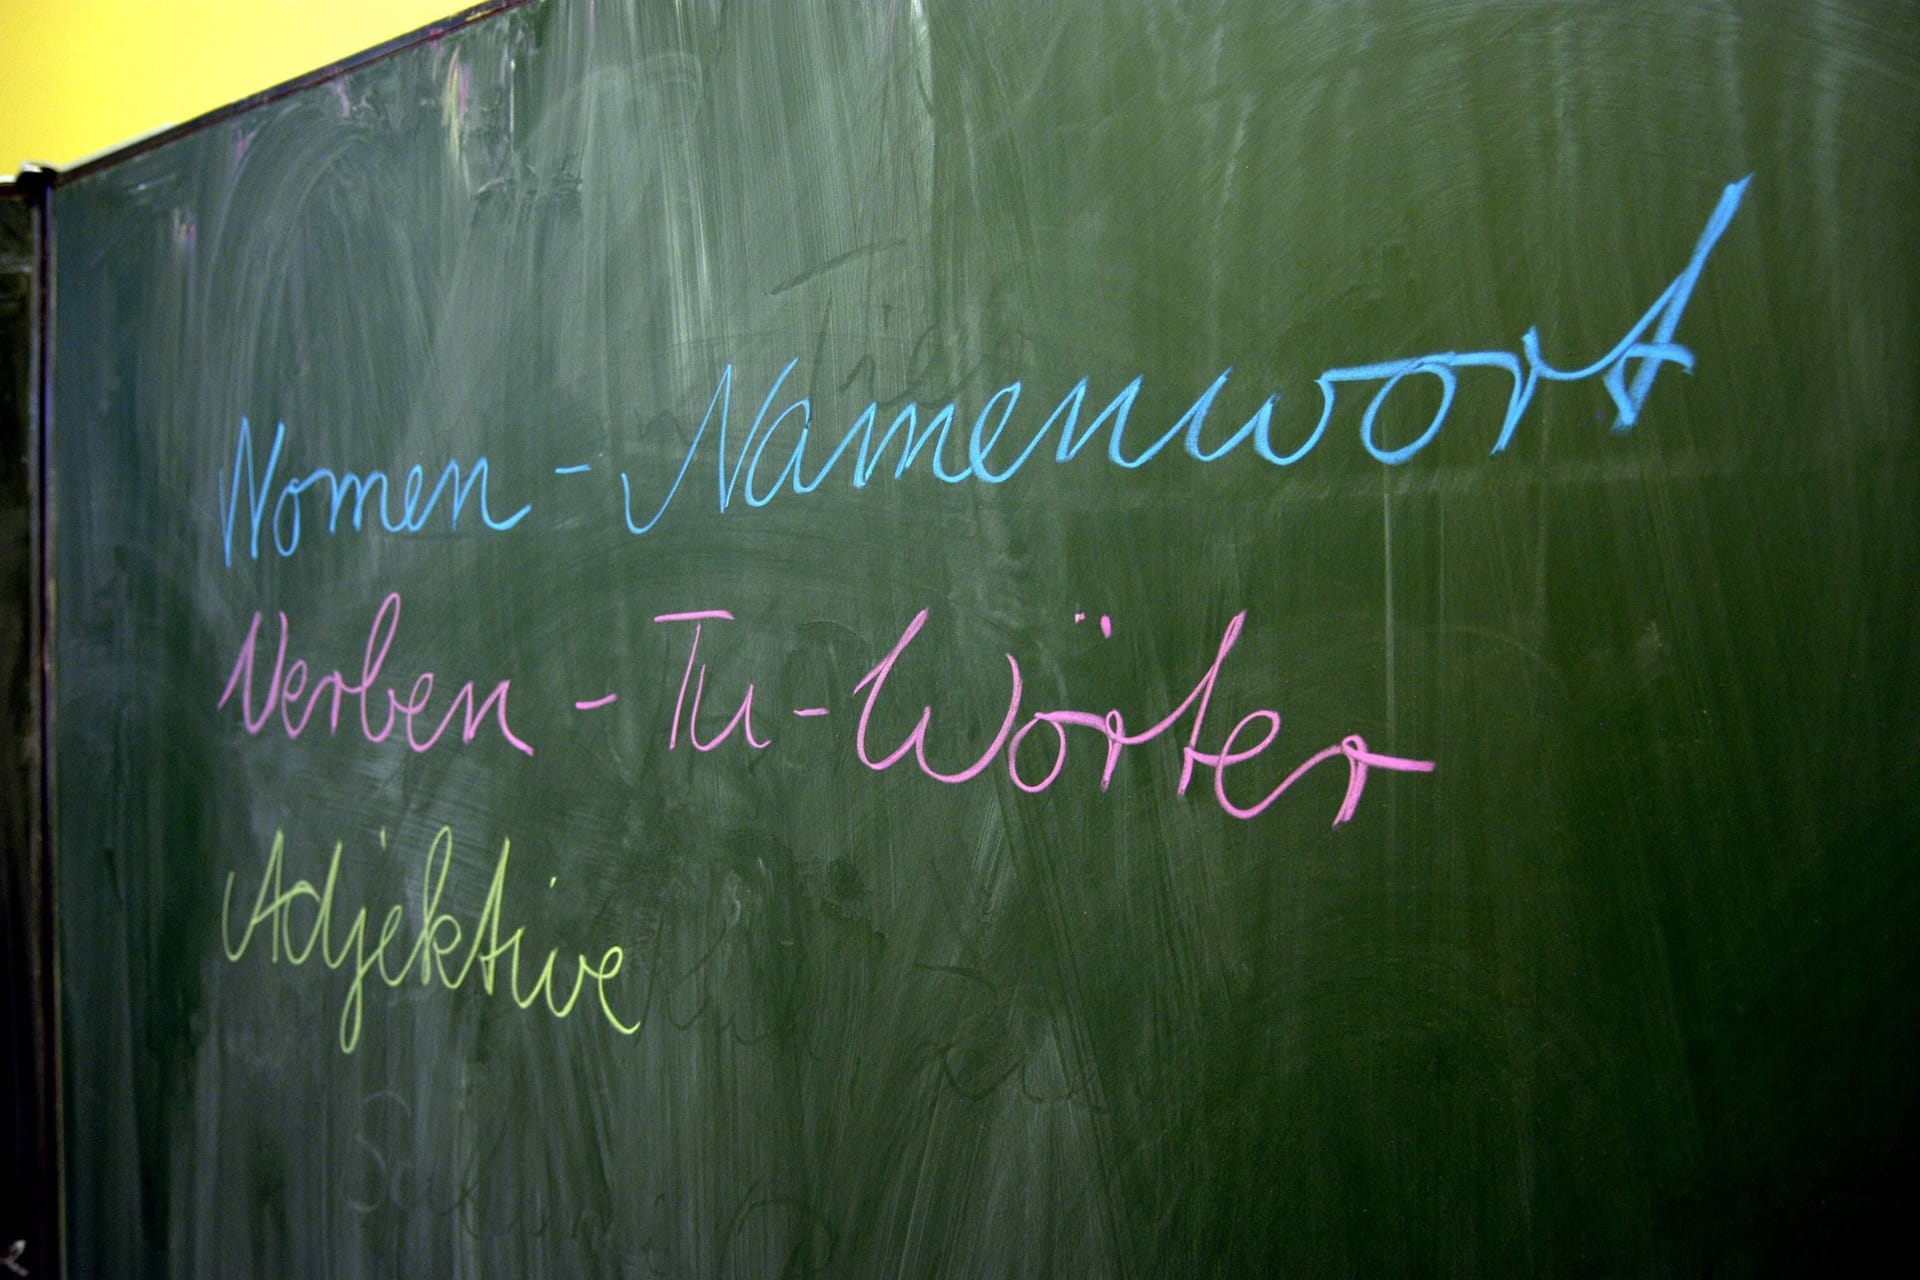 Nomen - Namenwort
Verben - Tu-Wörter
Adjektive